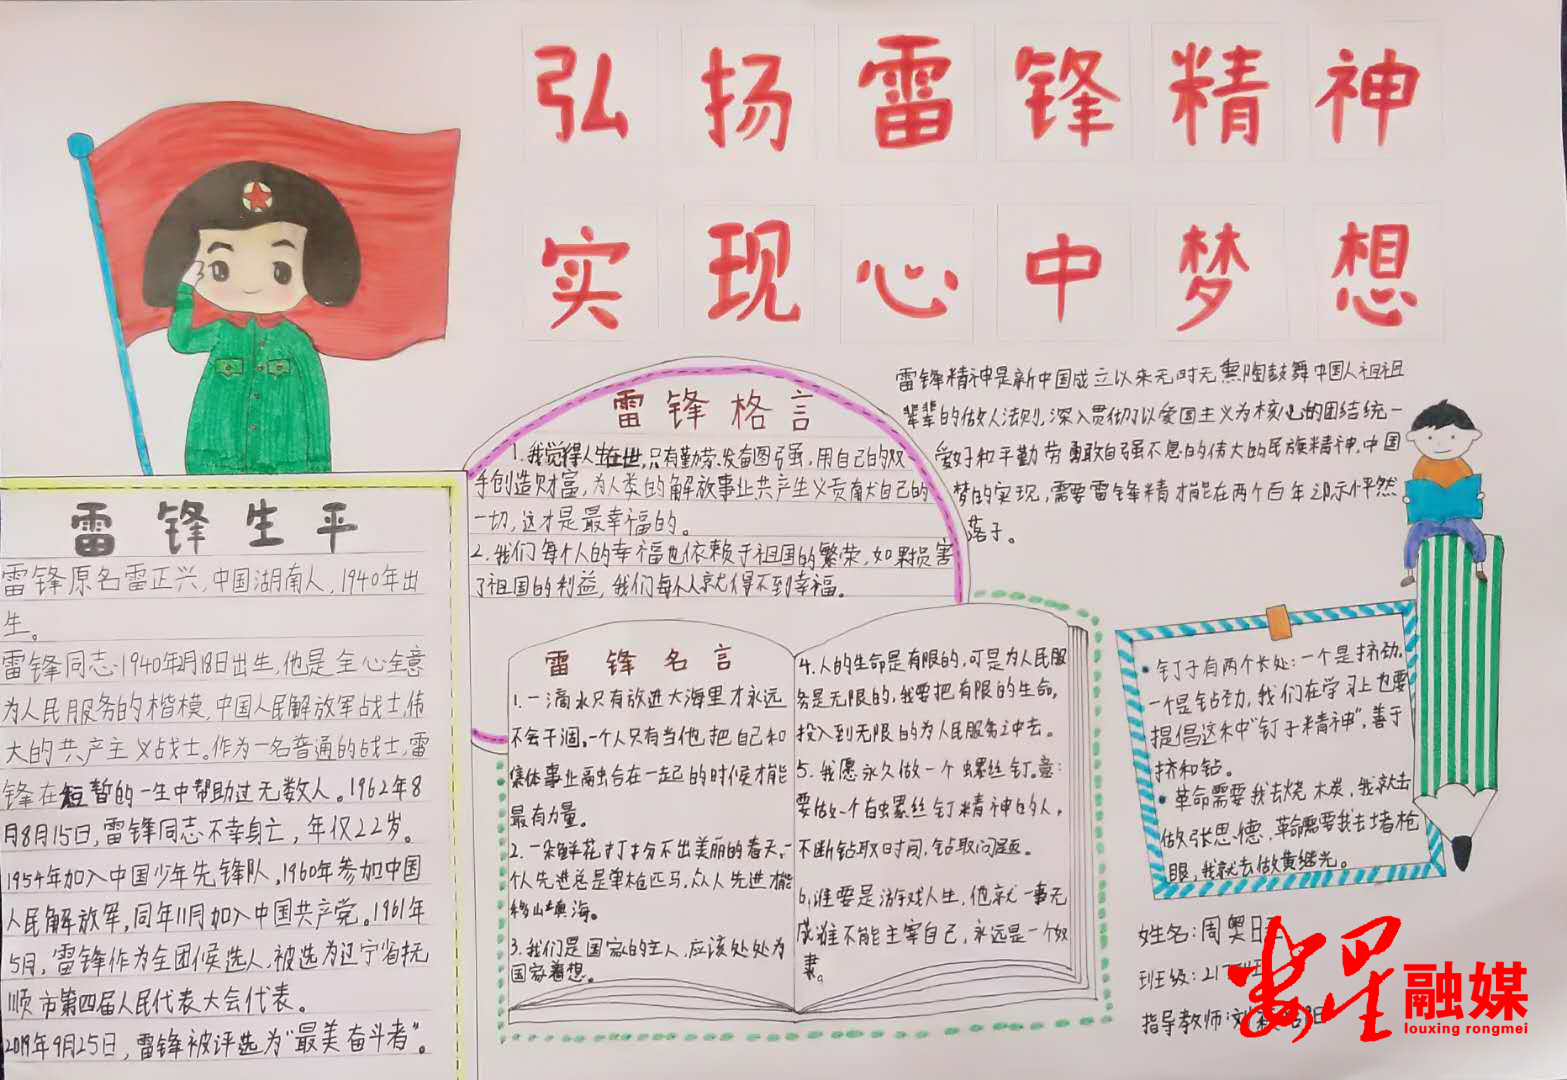 弘扬雷锋精神
实现心中梦想
雷锋精神是新中国成立以来无时无熏陶鼓舞中国人祖祖
辈辈的做人法则,深入贯彻了以爱国主义为核心的团结统一
爱好和平勤劳勇敢自强不息的伟大的民族精神.中国
梦的实现,需要雷锋精才能在两个百年
落于。
雷锋格言
1.我觉得人生在世,只有勤劳.发奋图强,用自己的双
手创造财富,为人类的解放事业共产主义贡献自己的
一切,这才是最幸福的。
2.我们每个人的幸福也依赖于祖国的繁荣,如果损害
了祖国的利益,我们每人就得不到幸福。
雷锋生平
雷锋原名雷正兴,中国湖南人,1940年出
生。
雷锋同志1940年2月18日出生,他是全心全意
为人民服务的楷模,中国人民解放军战士,伟
大的共产主义战士。作为一名普通的战士,雷
锋在短暂的一生中帮助过无数人。1962年8
月8月15日,雷锋同志不幸身亡,年仅22岁。
1954年加入中国少年先锋队,1960年参加中国
人民解放军,同年11月加入中国共产党。1961年
5月,雷锋作为全团候选人.被选为辽宁省抚
顺市第四届人民代表大会代表。
2019年9月25日,雷锋被评选为"最美奋斗者"。
雷锋名言
1.一滴水只有放进大海里才永远
不会干涸,一个人只有当他把自己和
集体事业融合在一起的时候才能
最有力量。
2.一朵鲜花打扮不出美丽的春天,一
个人先进总是单枪匹马,众人先进才能
移山填海。
3.我们是国家的主人,应该处处为
国家着想。
4.人的生命是有限的,可是为人民服
务是无限的,我要把有限的生命,
投入到无限的为人民服务之中去。
5.我愿永久做一个螺丝钉。意:
要做一个白螺丝钉精神的人,
不断钻取时间,钻取问题。
6.谁要是游戏人生,他就一事无
成谁不能主宰自己,永远是一个奴
隶。
•钉子有两个长处:一个是挤劲.
一个是钻劲,我们在学习上也要
提倡这种"钉子精神",善于
挤和钻。
•革命需要我去烧木炭,我就去
做张思德.革命需要我去堵枪
眼,我就去做黄继光。
姓名:周奥
班级:21
指导教师:刘
娄星融媒
louxing rongmei